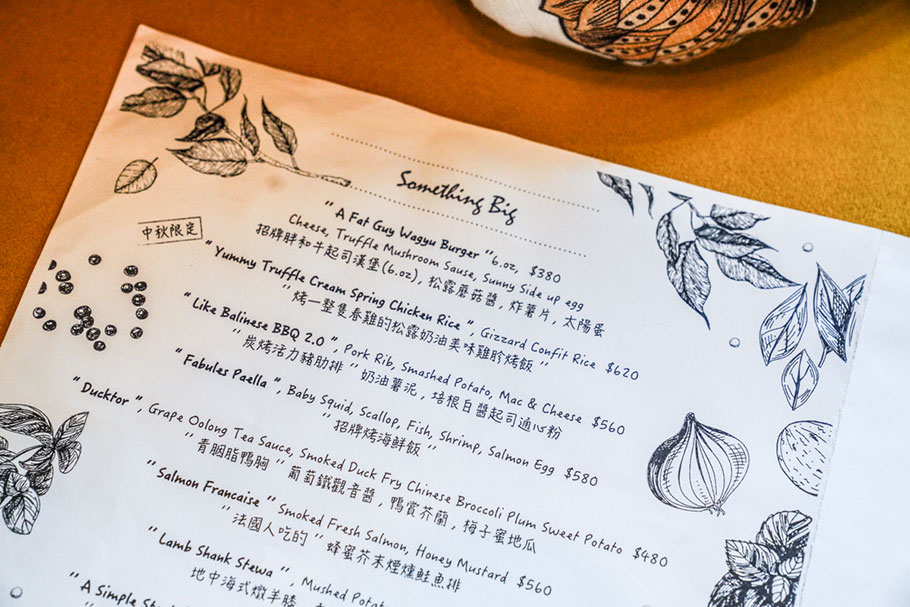 Something Big
" A Fat Guy Wagyu Burger " 6.oz, $380
Cheese, Truffle Mushroom Sause, Sunny Side up egg
招牌胖和牛起司漢堡(6.oz), 松露蘑菇醬, 炸薯片, 太陽蛋
中秋限定
" Yummy Truffle Cream Spring Chicken Rice ", Gizzard Confit Rice $620
" 烤一整隻春雞的松露奶油美味雞肣烤飯 "
" Like Balinese BBQ 2.0 ", Pork Rib, Smashed Potato, Mac & Cheese $560
" 炭烤活力豬肋排 " 奶油薯泥, 培根白醬起司通心粉
" Fabules Paella ", Baby Squid, Scallop, Fish, Shrimp, Salmon Egg $580
" 招牌烤海鮮飯 "
" Ducktor ", Grape Oolong Tea Sauce, Smoked Duck Fry Chinese Broccoli Plum Sweet Potato $480
" 青胭脂鴨胸 " 葡萄鐵觀音醬, 鴨賞芥蘭, 梅子蜜地瓜
" Salmon Francaise " Smoked Fresh Salmon, Honey Mustard $560
" 法國人吃的 " 蜂蜜芥末煙燻鮭魚排
" Lamb Shank Stewa ", Mushed Potato
地中海式燉羊膝
" A Simple